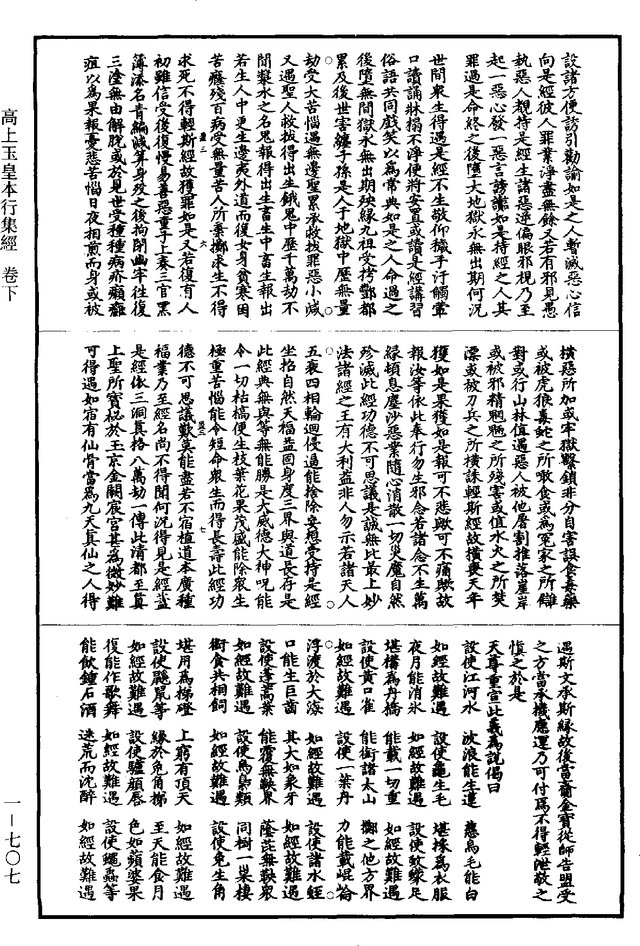 高上玉皇本行集經 卷下
設諸方便誘引勸諭如是之人暫滅惡心信
向是經彼人罪業淨盡無餘又若有邪見愚
執惡人覩持是經生諸惡逆偏眼邪視乃至
起一惡心發一惡言謗讟如是持經之人其
罪過是命終之後墮大地獄永無出期何況
世間衆生得遇是經不生敬仰穢手汙觸葷
口讀誦牀榻不淨便將安置或讀是經講習
俗語共同戲笑以為常典如是之人命過之
後墮無間獄永無出期殃緣九祖受拷酆都
累及後世害纏子孫是人于地獄中歷無量
劫受大苦惱遇無邊聖累承救拔罪惡小減
又遇聖人救拔得出生餓鬼中歷千萬劫不
聞漿水之名鬼報得出生畜生中畜生報出
若生人中更生邊夷外道而復女身貧寒困
苦癃殘百病受無量苦人所棄擲求生不得
求死不得輕斯經故獲罪如是又若復有人
初雖信受後復慢易善惡童子上奏三官黑
簿漆名青編減筭身歿之後拘閉幽牢往復
三塗無由解脫或於見世受種種病疥癩癰
疽以為果報憂悲苦惱日夜相煎而身或被
橫惡所加或牢獄繫鎖非分自害誤食毒藥
或被虎狼毒蛇之所噉食或為冤家之所讎
對或行山林值遇惡人被他屠割推落崖岸
或被邪精魍魎之所殘害或值水火之所焚
漂或被刀兵之所橫誅輕斯經故橫喪天年
獲如是果獲如是報可不悲歟可不痛歟故
報汝等依此奉行勿生邪念若諸念不生萬
緣頓息塵沙惡業隨心消散一切災魔自然
殄滅此經功德不可思議是誠無比最上妙
法諸經之王有大利益非人勿示若諸天人
五衰四相輪迴侵逼能捨除妄想受持是經
坐招自然天福益固身度三界與道長存是
此經典無與等無能勝是大威德大神呪能
令一切枯槁便生枝葉花果茂盛能除衆生
極重苦惱能令短命衆生而得長壽此經功
德不可思議歎莫能盡若不宿植道本廣種
福業乃至經名尚不得聞何況得見是經蓋
是經依三洞真格八萬劫一傳此清都至真
上聖所寶祕於玉京金闕宸宮甚為微妙難
可得遇如宿有仙骨當為九天真仙之人得
遇斯文承斯緣故後當齎金寶從師告盟受
之方當承機應運乃可付焉不得輕泄敬之
慎之於是
天尊重宣此義為說偈曰
設使江河水 波浪能生蓮 慈烏毛能白
如經故難遇 設使龜生毛 堪採為衣服
夜月能消氷 如經故難遇 設使蚊蠓足
堪構為丹橋 能載一切重 如經故難遇
設使黃口雀 能銜諸太山 擲之他方界
如經故難遇 設使一葉丹 力能載崐崙
浮渡於大海 如經故難遇 設使諸水蛭
口能生巨齒 其大如象牙 如經故難遇
設使蓬蒿葉 能覆無軼界 蔭芘無軼衆
如經故難遇 設使烏鳥類 同樹一巢棲
銜食共相飼 如經故難遇 設使兔生角
堪用為梯磴 上窮有頂天 如經故難遇
設使鼷鼠等 緣於兔角梯 至天能食月
如經故難遇 設使驢顏唇 色如蘋婆果
復能作歌舞 如經故難遇 設使蠅蟲等
能飲鍾石酒 迷荒而沈醉 如經故難遇
一—七〇七